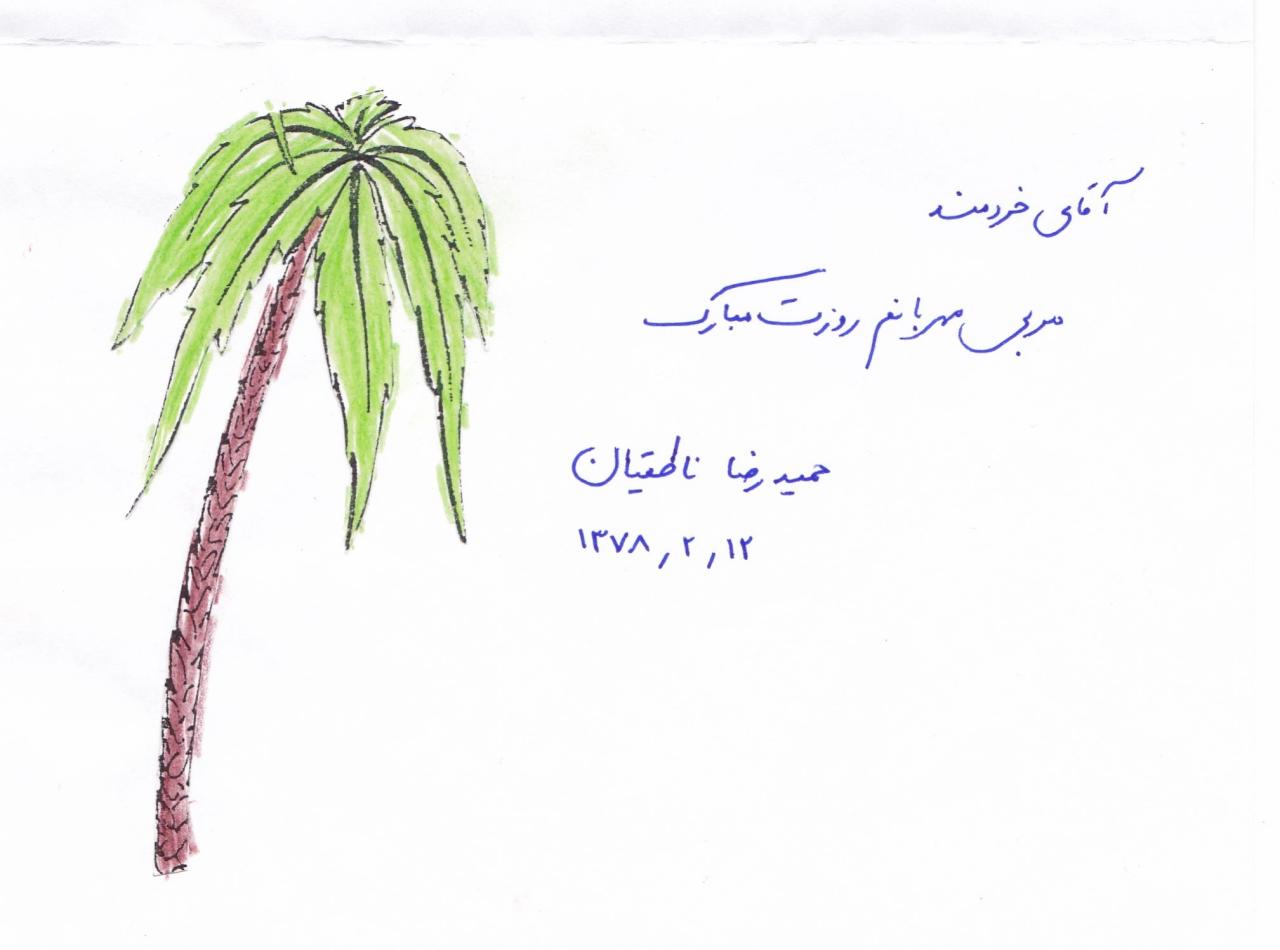 آقای خردمند
مربی مهربانم روزت مبارک
حمیدرضا ناطقیان
۱۳۷۸٫۲٫۱۲